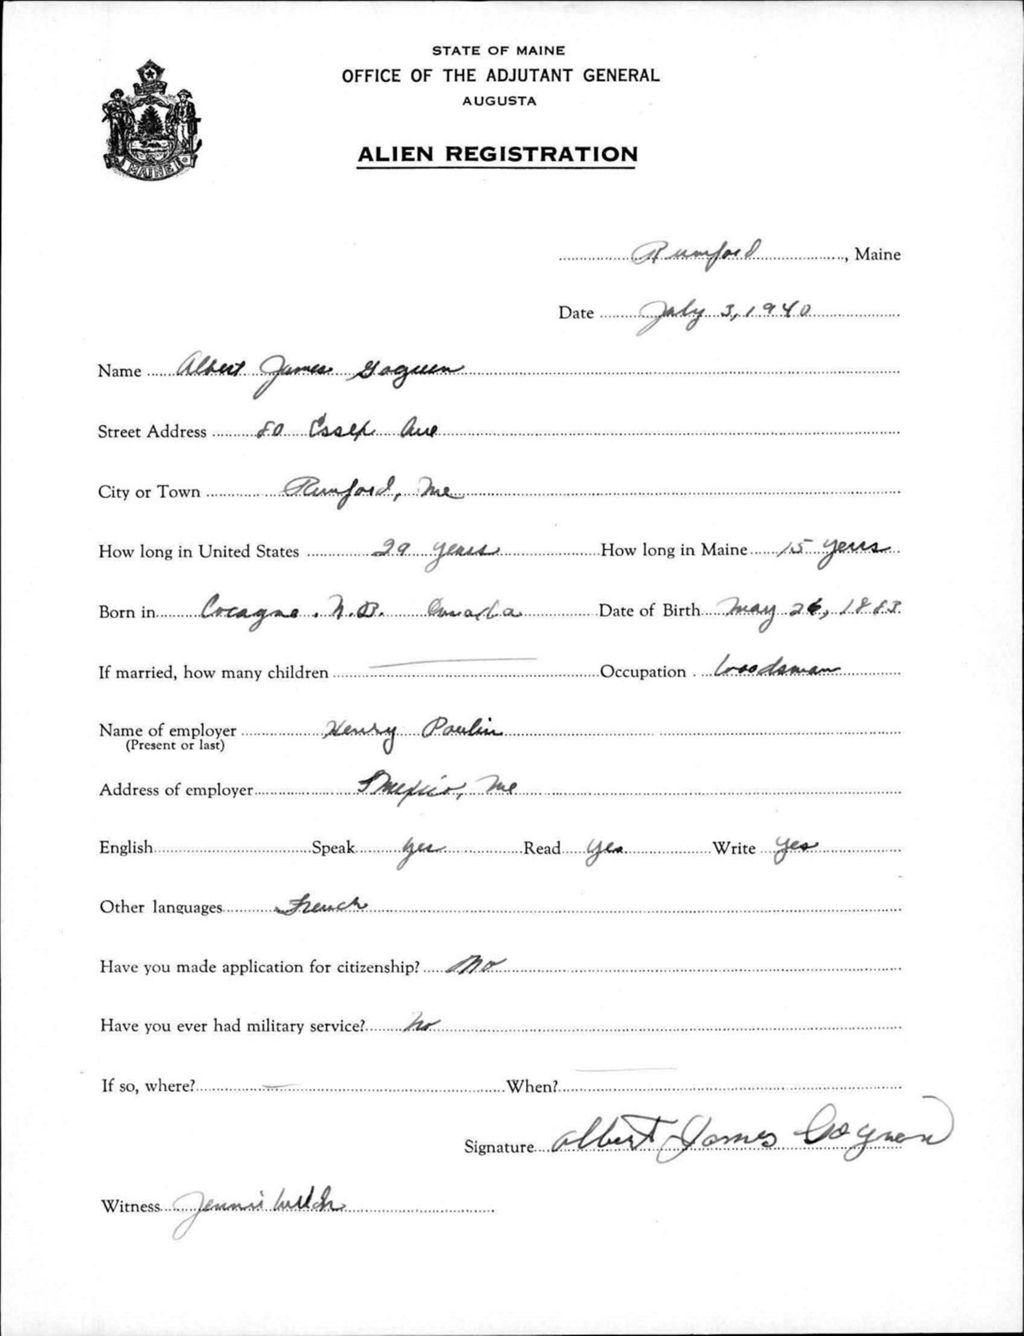 STATE OF MAINE
OFFICE OF THE ADJUTANT GENERAL
AUGUSTA
ALIEN REGISTRATION
MAINE
Rumford, Maine
Date July 3, 1940
Name Albert James Goguen
Street Address 80 Essex Ave
City or Town Rumford, Me
How long in United States 29 years How long in Maine 15 years
Born in Cocagne. N.B. Canada Date of Birth May 26, 1883
If married, how many children — Occupation Woodsman
Name of employer Henry Poulin
(Present or last)
Address of employer Mexico, Me
English Speak yes Read yes Write yes
Other languages French
Have you made application for citizenship? No
Have you ever had military service? no
If so, where? — When? —
Signature Albert James Goguen
Witness Jennie Welch